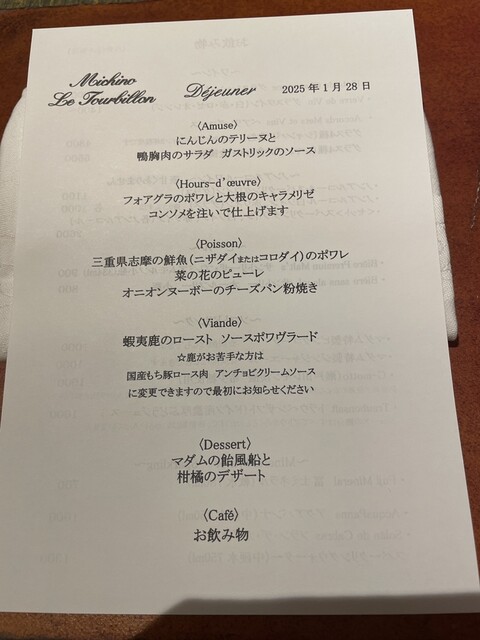 Michino
Le Tourbillon
Déjeuner
2025年1月28日
〈Amuse〉
にんじんのテリーヌと
鴨胸肉のサラダ ガストリックのソース
〈Hours-d'œuvre〉
フォアグラのポワレと大根のキャラメリゼ
コンソメを注いで仕上げます
〈Poisson〉
三重県志摩の鮮魚(ニザダイまたはコロダイ)のポワレ
菜の花のピューレ
オニオンヌーボーのチーズパン粉焼き
〈Viande〉
蝦夷鹿のロースト ソースポワヴラード
☆鹿がお苦手な方は
国産もち豚ロース肉 アンチョビクリームソース
に変更できますので最初にお知らせください
〈Dessert〉
マダムの飴風船と
柑橘のデザート
〈Café〉
お飲み物